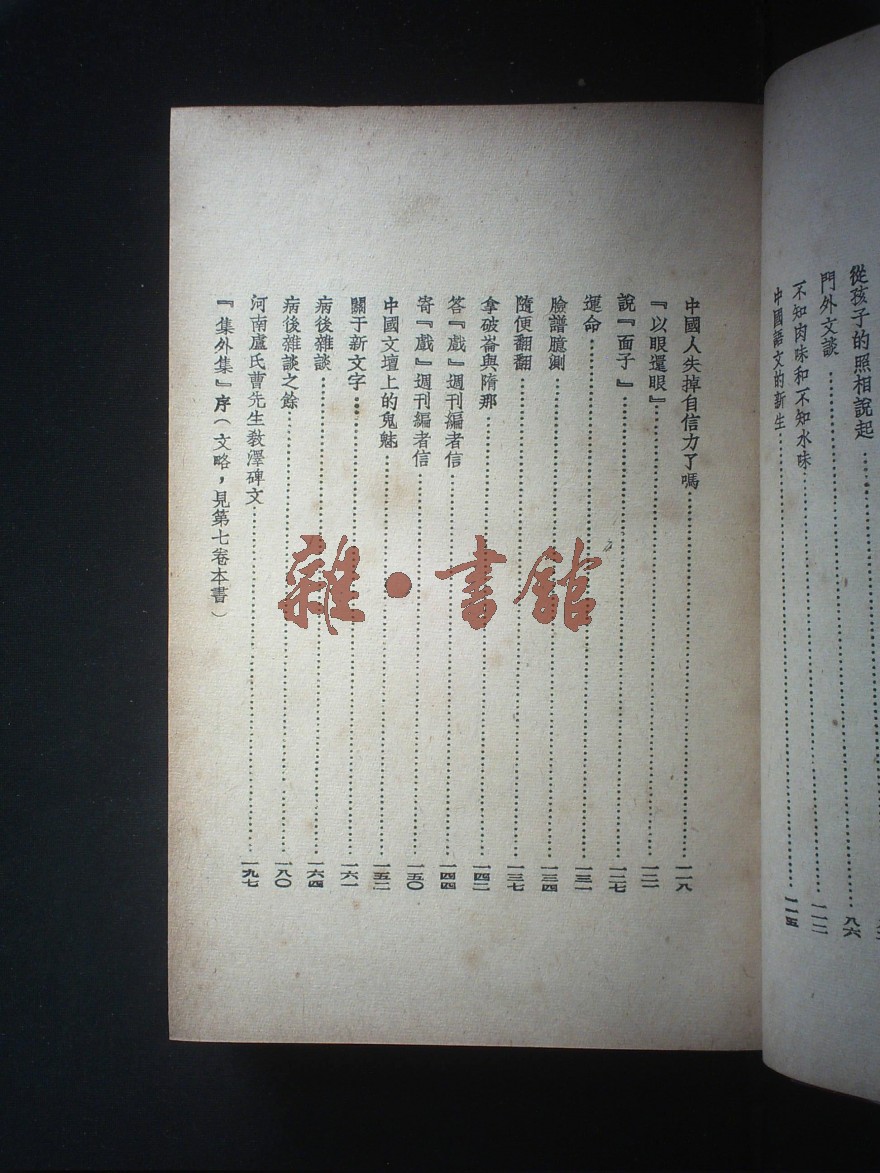 從孩子的照相說起……八六
門外文談……
不知肉味和不知水味……一一二
中國語文的新生……一一五
中國人失掉自信力了嗎……一一八
『以眼還眼』……一二一
說『面子』……一二七
運命……一三一
臉譜臆測……一三四
隨便翻翻……一三七
拿破崙與隋那……一四二
答『戲』週刊編者信……一四四
寄『戲』週刊編者信……一五〇
中國文壇上的鬼魅……一五二
關于新文字……一六一
病後雜談……一六四
病後雜談之餘……一八〇
河南盧氏曹先生教澤碑文……一九七
『集外集』序（文略，見第七卷本書）
雜·書館